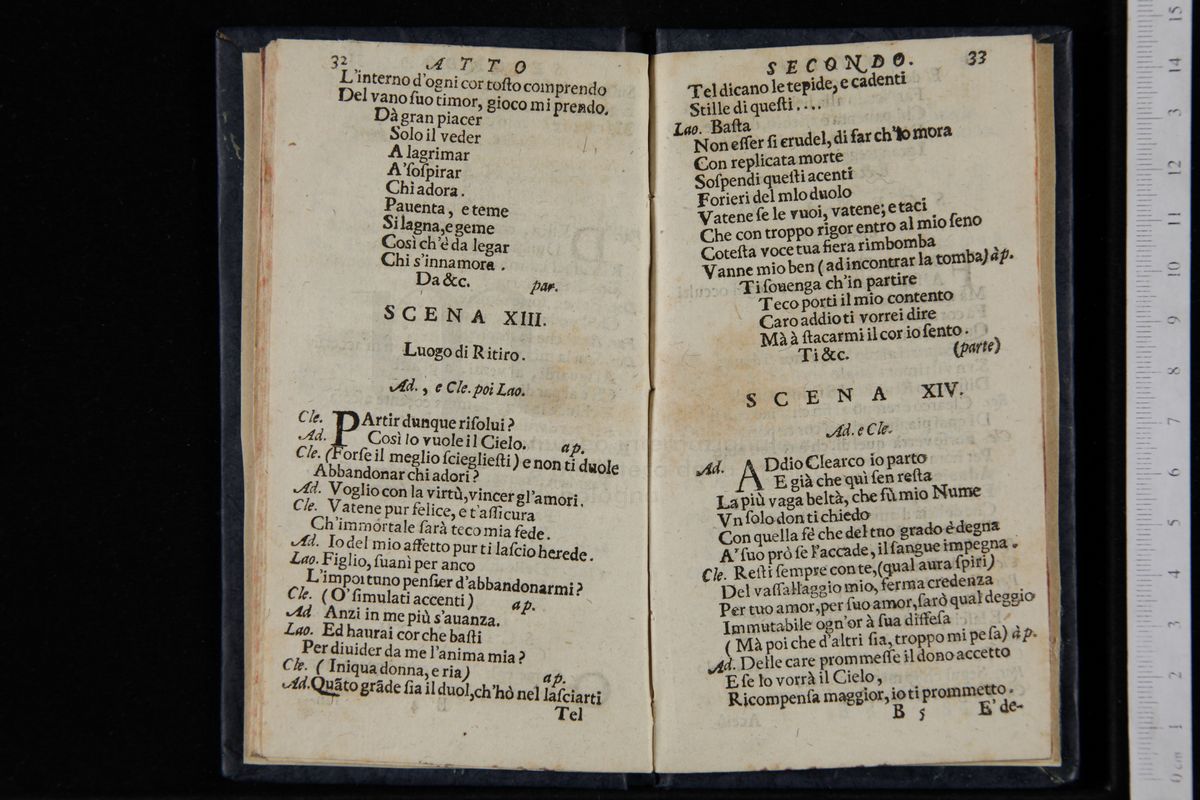 32 ATTO
L'interno d'ogni cor toſto comprendo
Del vano ſuo timor, gioco mi prendo.
Dà gran piacer
Solo il veder
A lagrimar
A'ſoſpirar
Chi adora.
Pauenta, e teme
Si lagna, e geme
Così ch'è da legar
Chi s'innamora.
Da &c. par.
SCENA XIII.
Luogo di Ritiro.
Ad., e Cle. poi Lao.
Cle. PArtir dunque riſolui?
Ad. Così lo vuole il Cielo. ap.
Cle. (Forſe il meglio ſcieglieſti) e non ti duole
Abbandonar chi adori?
Ad. Voglio con la virtù, vincer gl'amori.
Cle. Vatene pur felice, e t'aſſicura
Ch'immortale ſarà teco mia fede.
Ad. Io del mio affetto pur ti laſcio herede.
Lao. Figlio, ſuanì per anco
L'impoituno penſier d'abbandonarmi?
Cle. (O' ſimulati accenti) ap.
Ad Anzi in me più s'auanza.
Lao. Ed haurai cor che baſti
Per diuider da me l'anima mia?
Cle. (Iniqua donna, e ria) ap.
Ad. Quãto grãde ſia il duol, ch'hò nel laſciarti
Tel
SECONDO. 33
Tel dicano le tepide, e cadenti
Stille di queſti....
Lao. Baſta
Non eſſer ſi crudel, di far ch'Io mora
Con replicata morte
Soſpendi queſti acenti
Forieri del mIo duolo
Vatene ſe le vuoi, vatene; e taci
Che con troppo rigor entro al mio ſeno
Coteſta voce tua fiera rimbomba
Vanne mio ben (ad incontrar la tomba) àp.
Ti ſouenga ch'in partire
Teco porti il mio contento
Caro addio ti vorrei dire
Mà à ſtacarmi il cor io ſento.
Ti &c. (parte)
SCENA XIV.
Ad. e Cle.
Ad. ADdio Clearco io parto
E già che quì ſen reſta
La più vaga beltà, che fù mio Nume
Vn ſolo don ti chiedo
Con quella fè che del tuo grado è degna
A' ſuo prò ſe l'accade, il ſangue impegna.
Cle. Reſti ſempre con te, (qual aura ſpiri)
Del vaſſallaggio mio, ferma credenza
Per tuo amor, per ſuo amor, ſarò qual deggio
Immutabile ogn'or à ſua diffeſa
(Mà poi che d'altri ſia, troppo mi peſa) àp.
Ad. Delle care prommeſſe il dono accetto
E ſe lo vorrà il Cielo,
Ricompenſa maggior, io ti prommetto.
B 5 E' de-
15
14
13
12
11
10
9
8
7
6
5
4
3
2
1
0 cm